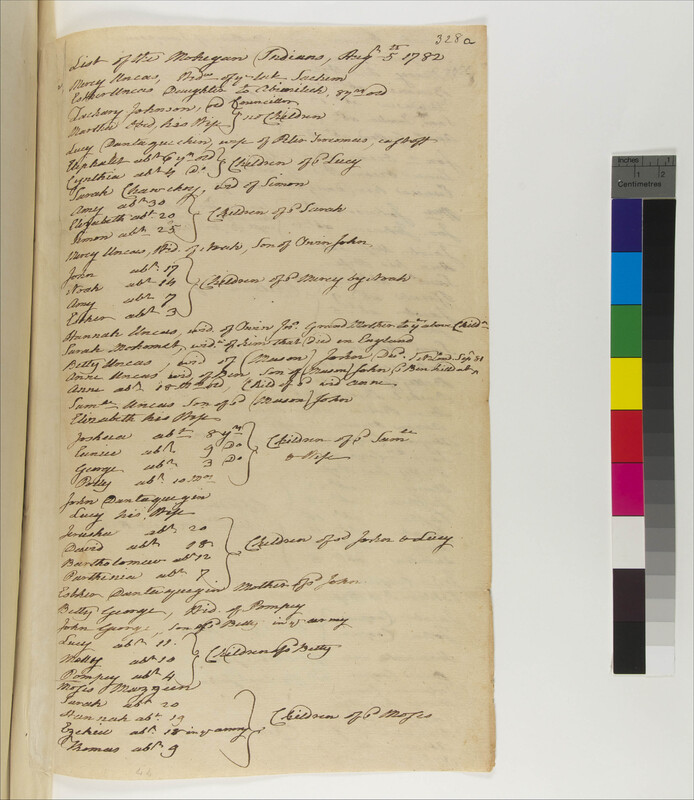 328a
List of the Mohegan Indians, Augst 5th 1782
Mercy Uncas, Widw of ye late Sachem
Esther Uncas Daughter to Abimilech, 8 yrs old
Zachary Johnson, old Councillor
Martha Do, his Wife } no Children
Lucy Dantaquechen, wife of Peter
Eliphalet abt 6 yrs old
Cynthia abt 4 Do } Children of sd Lucy
Sarah Chawchoy, wid of Simon
Amy abt 30
Elizabeth abt 20
Simon abt 25 } Children of sd Sarah
Mercy Uncas, Wid of Noah, Son of Owin John
John abt 17
Noah abt 14
Amy abt 7
Esther abt 3 } Children of sd Mercy by Noah
Hannah Uncas, wid. of Owin Jno. Grand Mother to ye above Childn
Sarah Mohomet, widw of him that Died in England
Betty Uncas, wid of (Mason) John
Anne Uncas, wid of Ben Son of (Mason) John
Anne abt 18 Mo old, Child of sd wid anne
Samll Uncas Son of sd (Mason) John
Elizabeth his Wife
Joshua abt 8 yrs
Eunice abt 9 Do
George abt 3 Do
Polly abt 10 Mos } Children of sd Samll
& Wife
John Dantaquegin
Lucy his Wife
Jerusha abt 20
David abt 18
Bartholomew abt 12
Parthenia abt 7 } Children of sd John & Lucy
Esther Dantaquegin Mother of sd John
Betty George, Wid. of Pompey
John George, Son of sd Betty in ye army
Lucy abt 11
Molly abt 10
Pompey abt 4 } Children of sd Betty
Moses Mazzeen
Sarah abt 20
Hannah abt 19
Ezekiel abt 18 in ye army
Thomas abt 9 } Children of sd Moses
inches 1 2
Centimetres